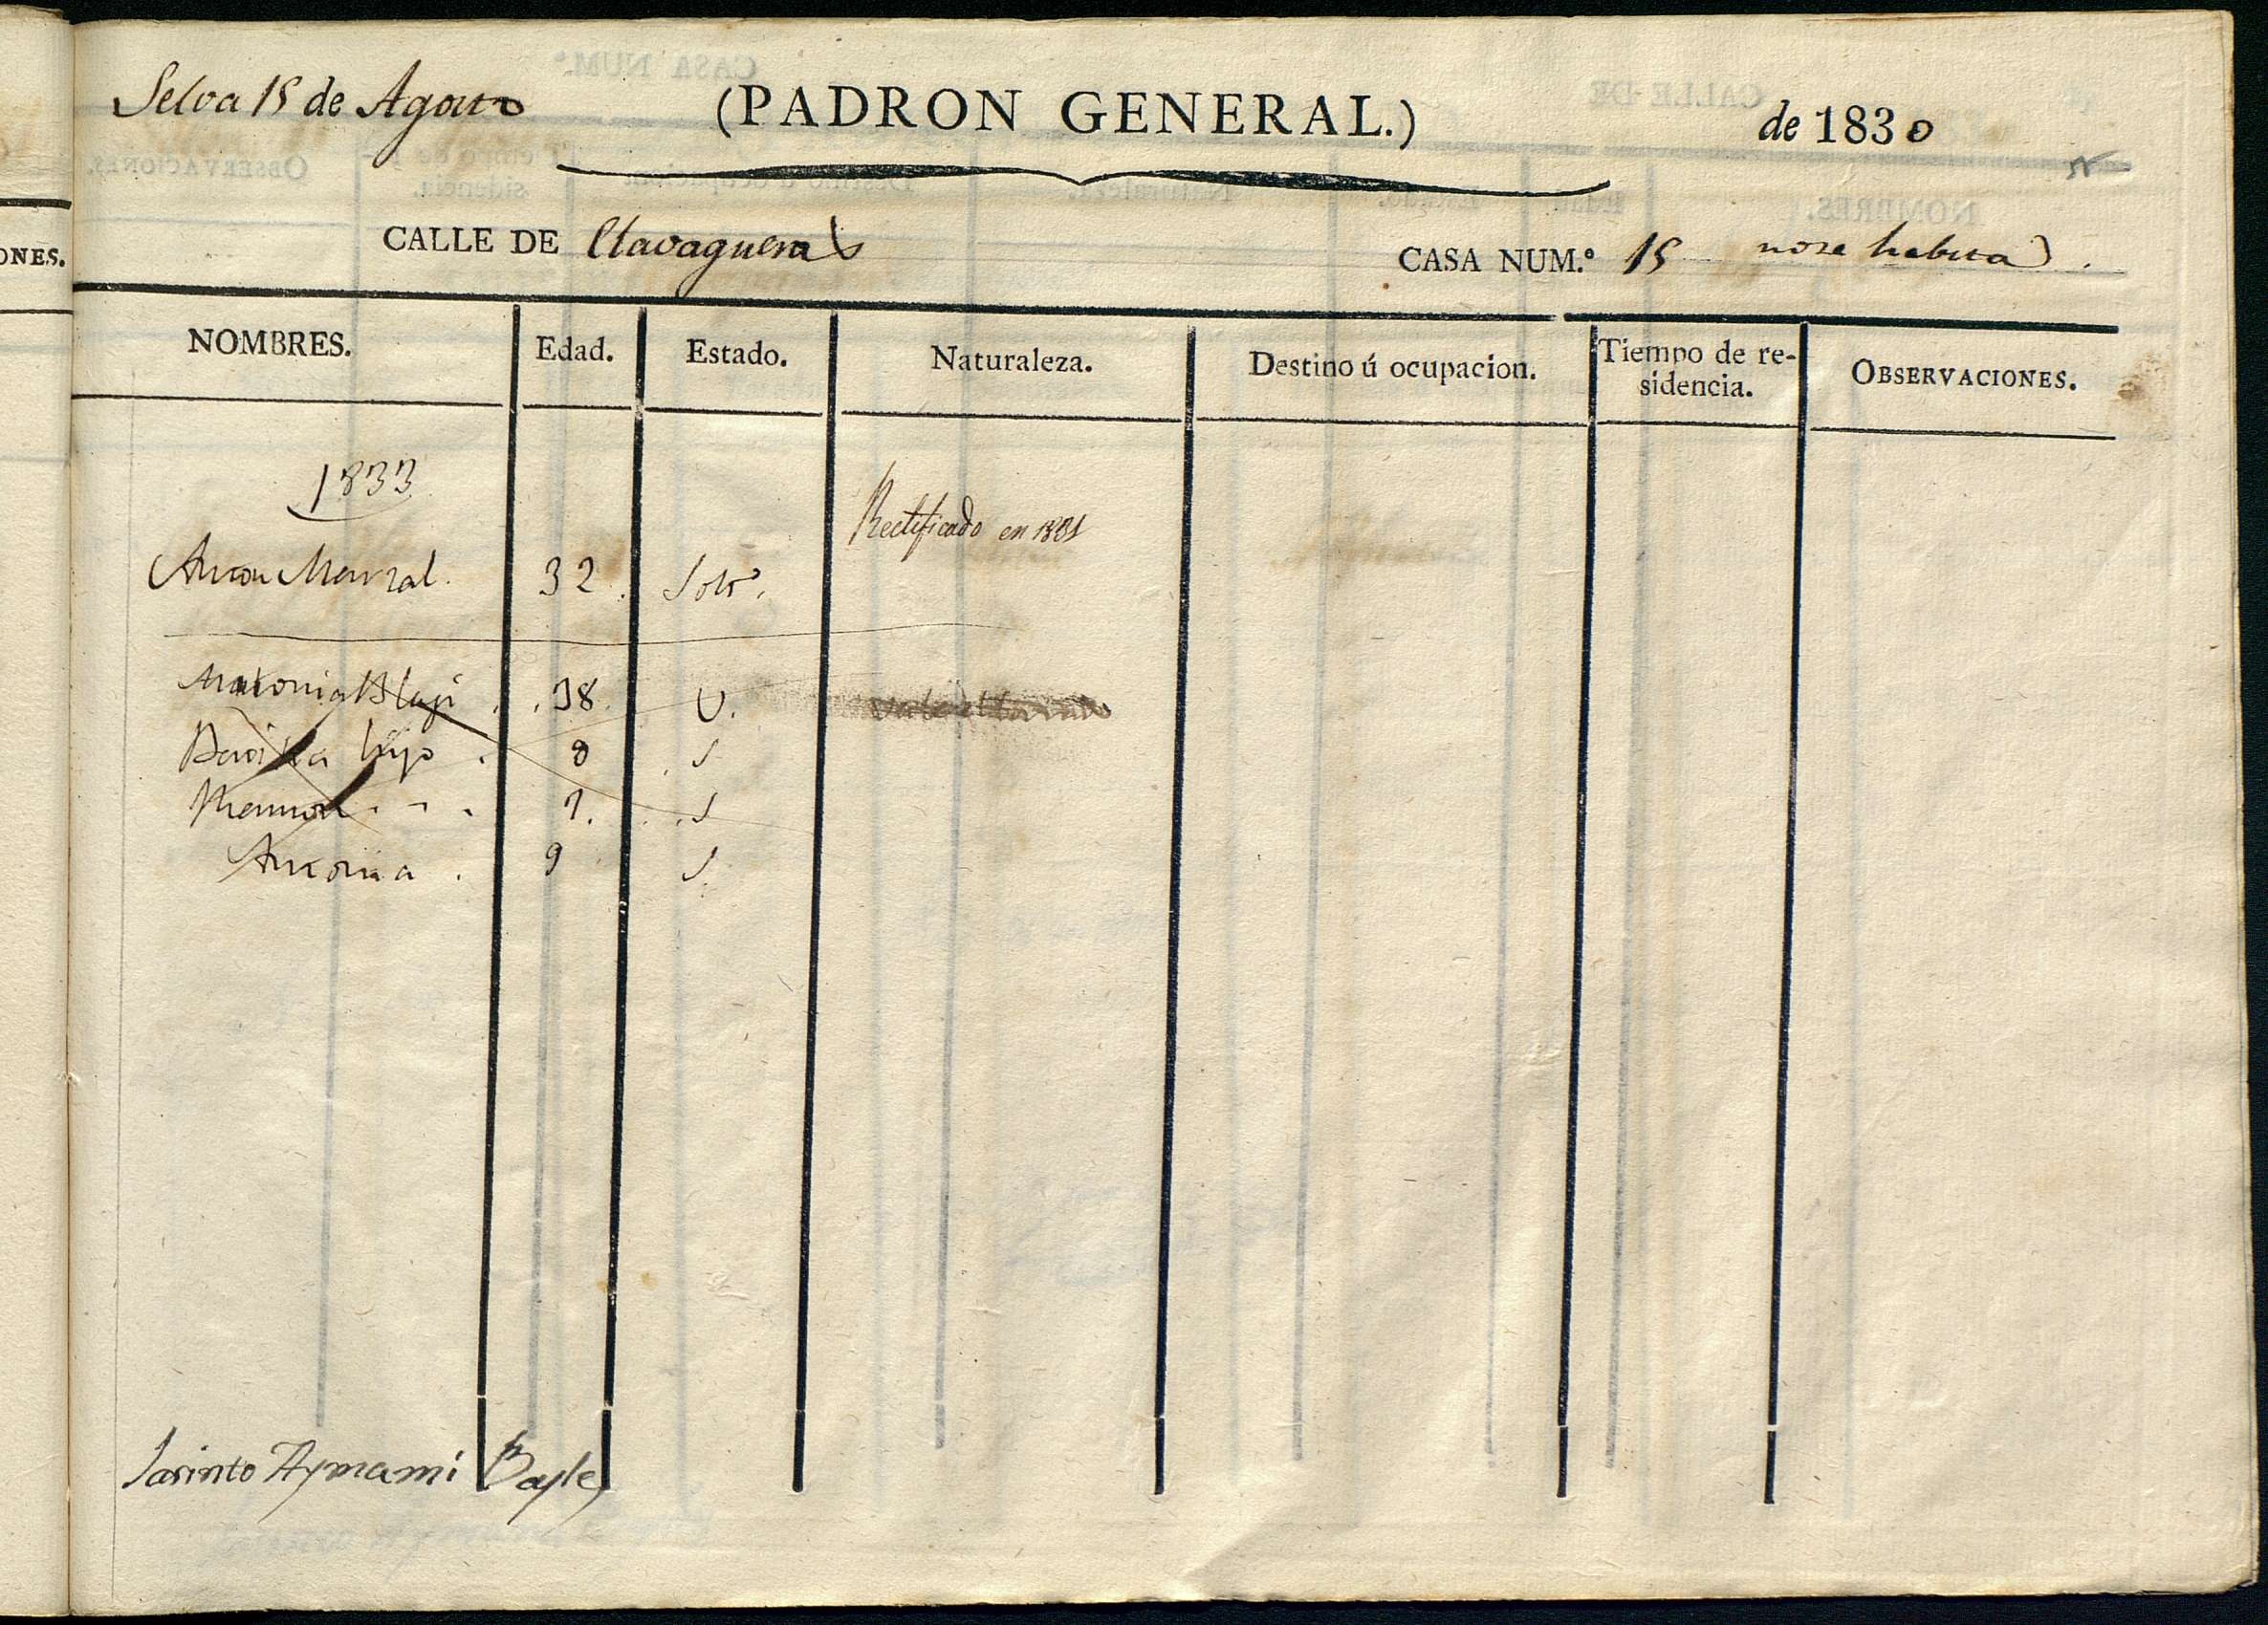 Selva 15 de Agosto (PADRON GENERAL.) de 1830
CALLE DE Clavagueras CASA NUM.º 15 no se habita
NOMBRES. Edad. Estado. Naturaleza. Destino ú ocupacion. Tiempo de re-sidencia. OBSERVACIONES.
ONES.
1833
Rectificado en 1831
Anton Monral. 32. Solt.º
Antonia 38. V.
hijo 8 S
7. S
Antonia 9 S
Jasinto Aymamí Bayle